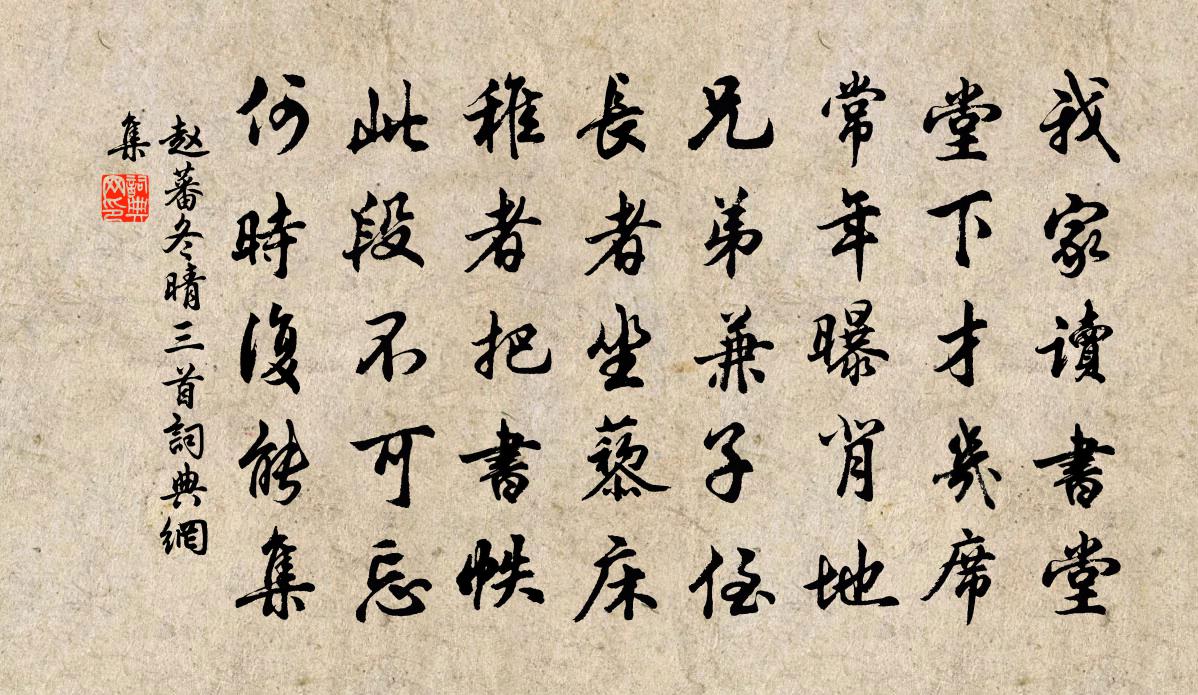 我家讀書堂
堂下才幾席
常年曝背地
兄弟兼子侄
長者坐藜床
稚者把書帙
此段不可忘
何時復能集
赵蕃冬晴三首詞典網
集
詞典
网印